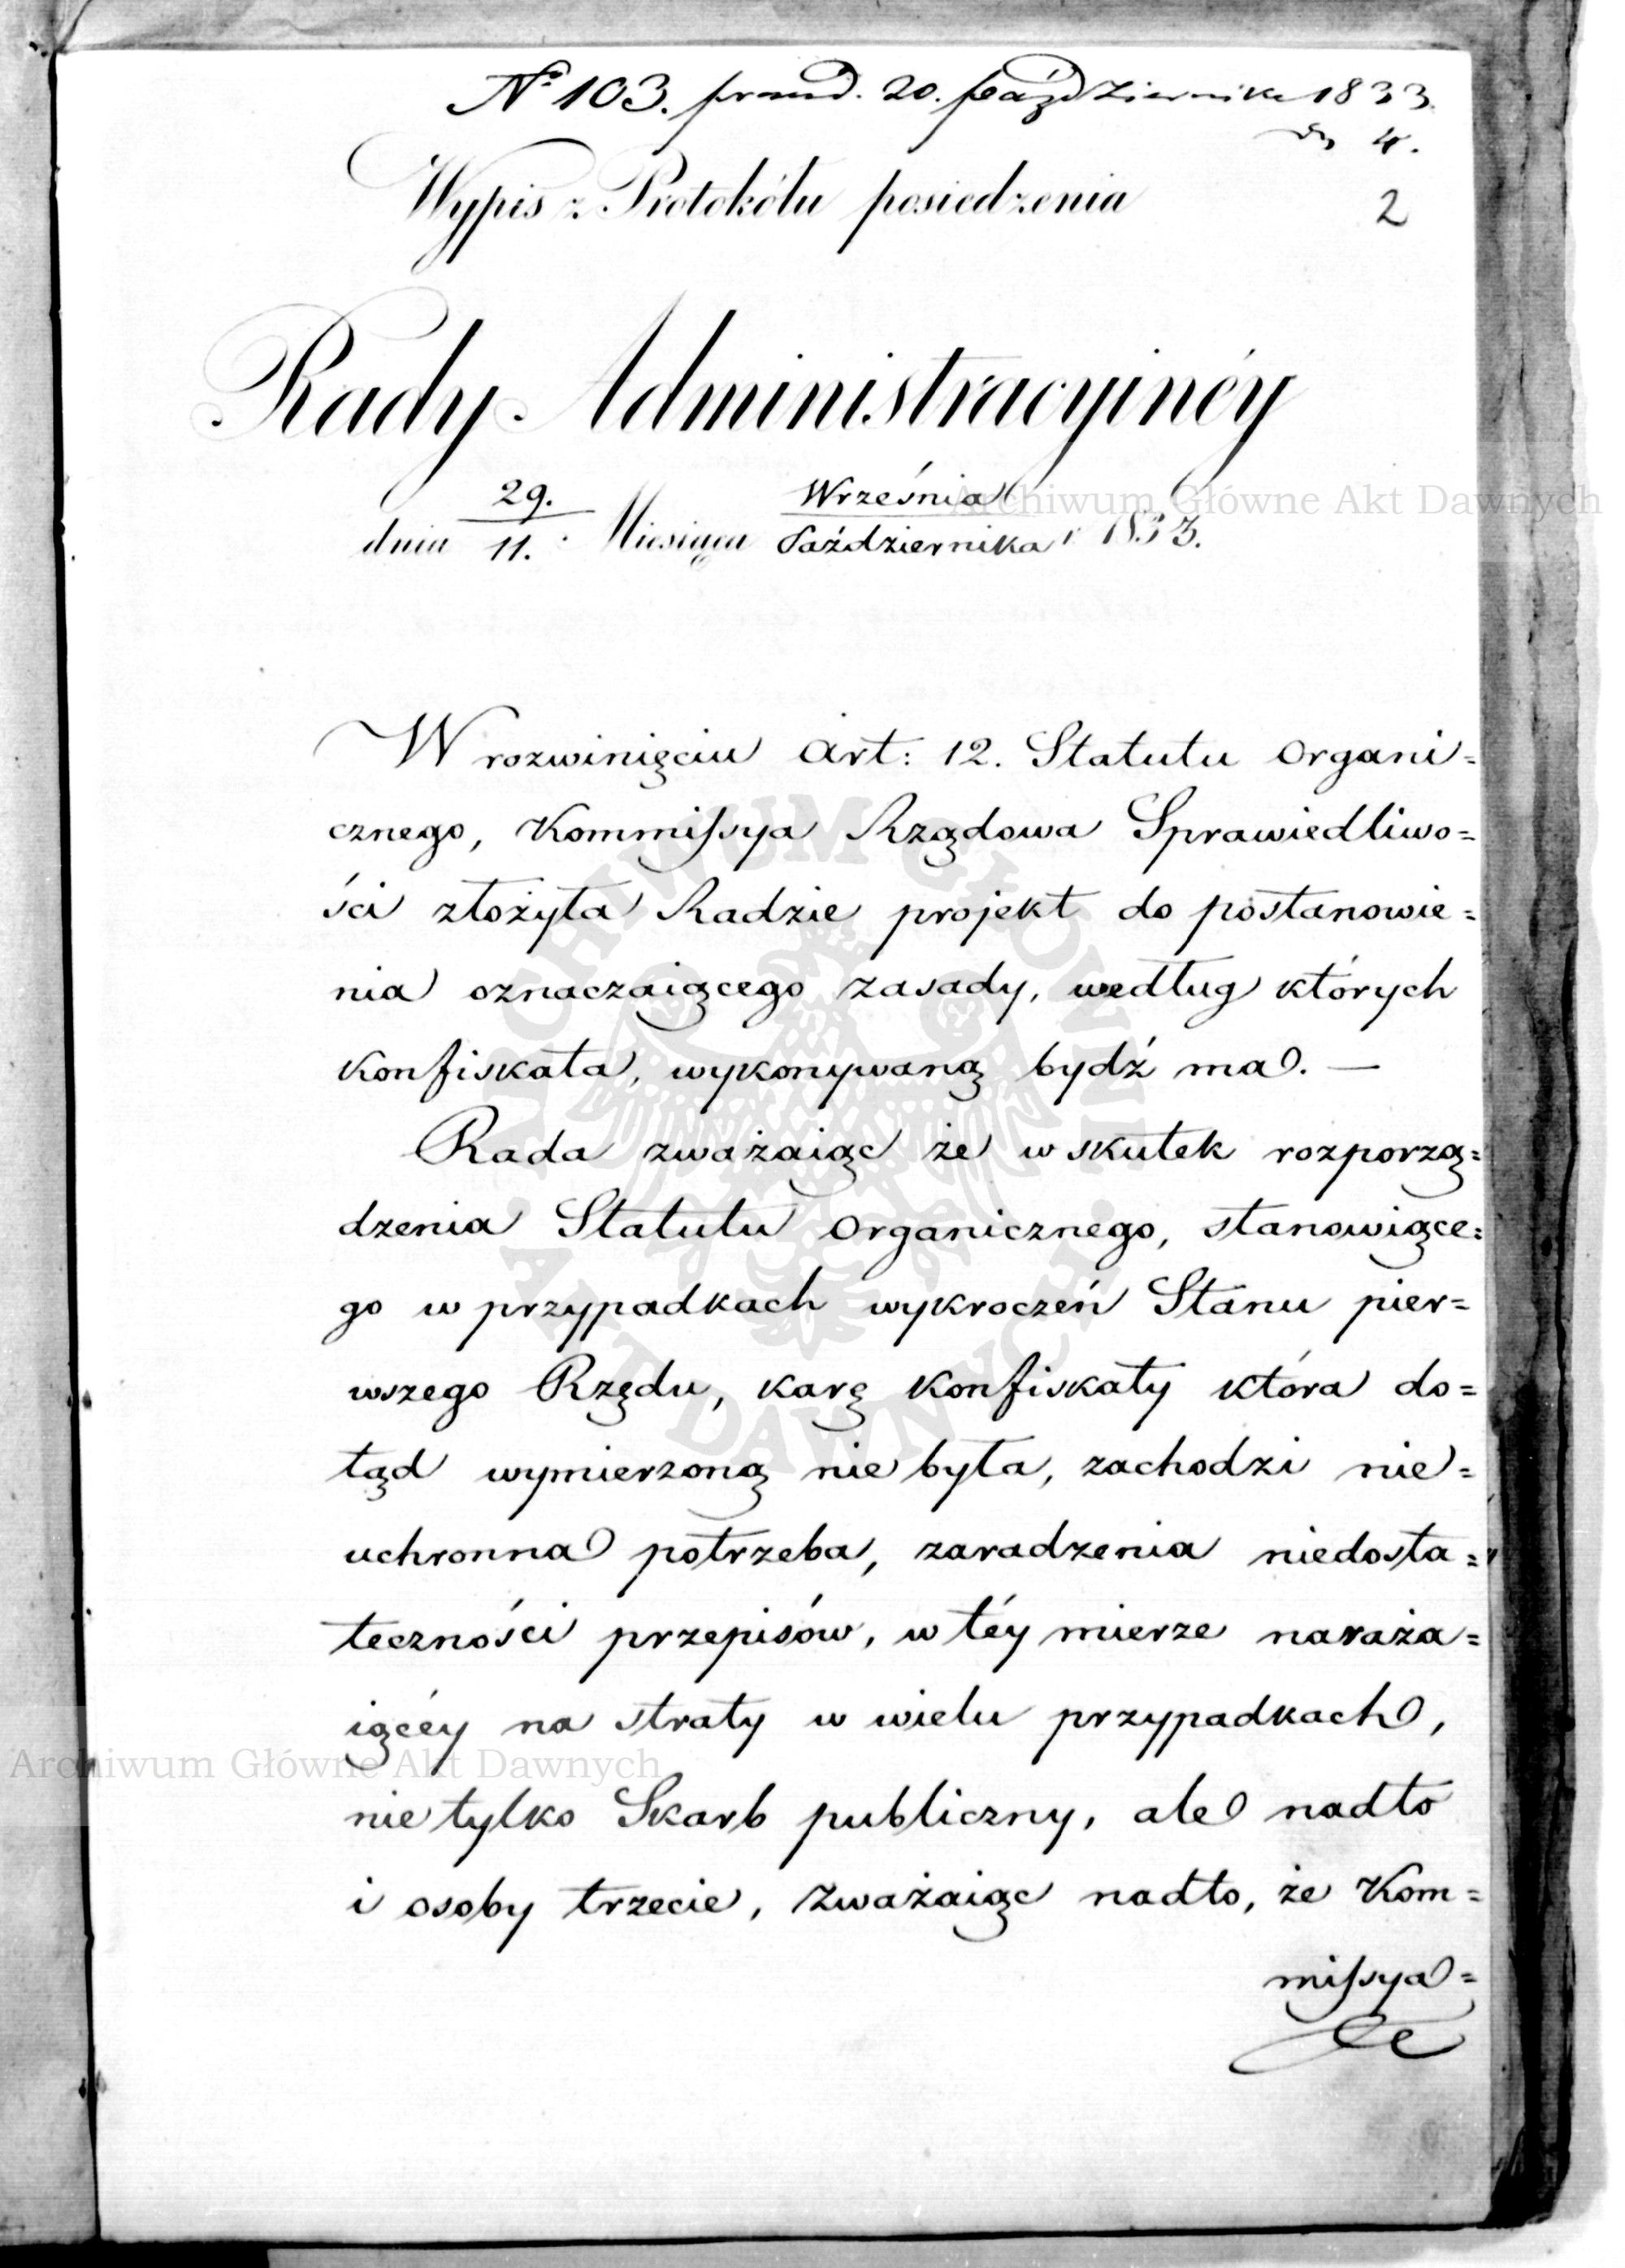 Nº 103. 20. października 1833
4.
Wypis z Protokółu posiedzenia
2
Rady Administracyinéy
29. Września
dnia 11. Miesiąca Października r 1833.
Archiwum Główne Akt Dawnych
W rozwinięciu Art: 12. Statutu Organi=
cznego, Kommissya Rządowa Sprawiedliwo=
ści złożyła Radzie projekt do postanowie=
nia oznaczaiącego zasady, według których
Konfiskata, wykonywaną bydź ma. —
Rada zważaiąc że w skutek rozporzą=
dzenia Statutu Organicznego, stanowiące=
go w przypadkach wykroczeń Stanu pier=
wszego Rzędu, karę Konfiskaty która do=
tąd wymierzoną nie była, zachodzi nie=
uchronna potrzeba, zaradzenia niedosta=
teczności przepisów, w téy mierze naraża=
iącéy na straty w wielu przypadkach,
Archiwum Główne Akt Dawnych
nie tylko Skarb publiczny, ale nadto
i osoby trzecie, zważaiąc nadto, że Kom=
missya=
ARCHIWUM GŁÓWNE
AKT DAWNYCH